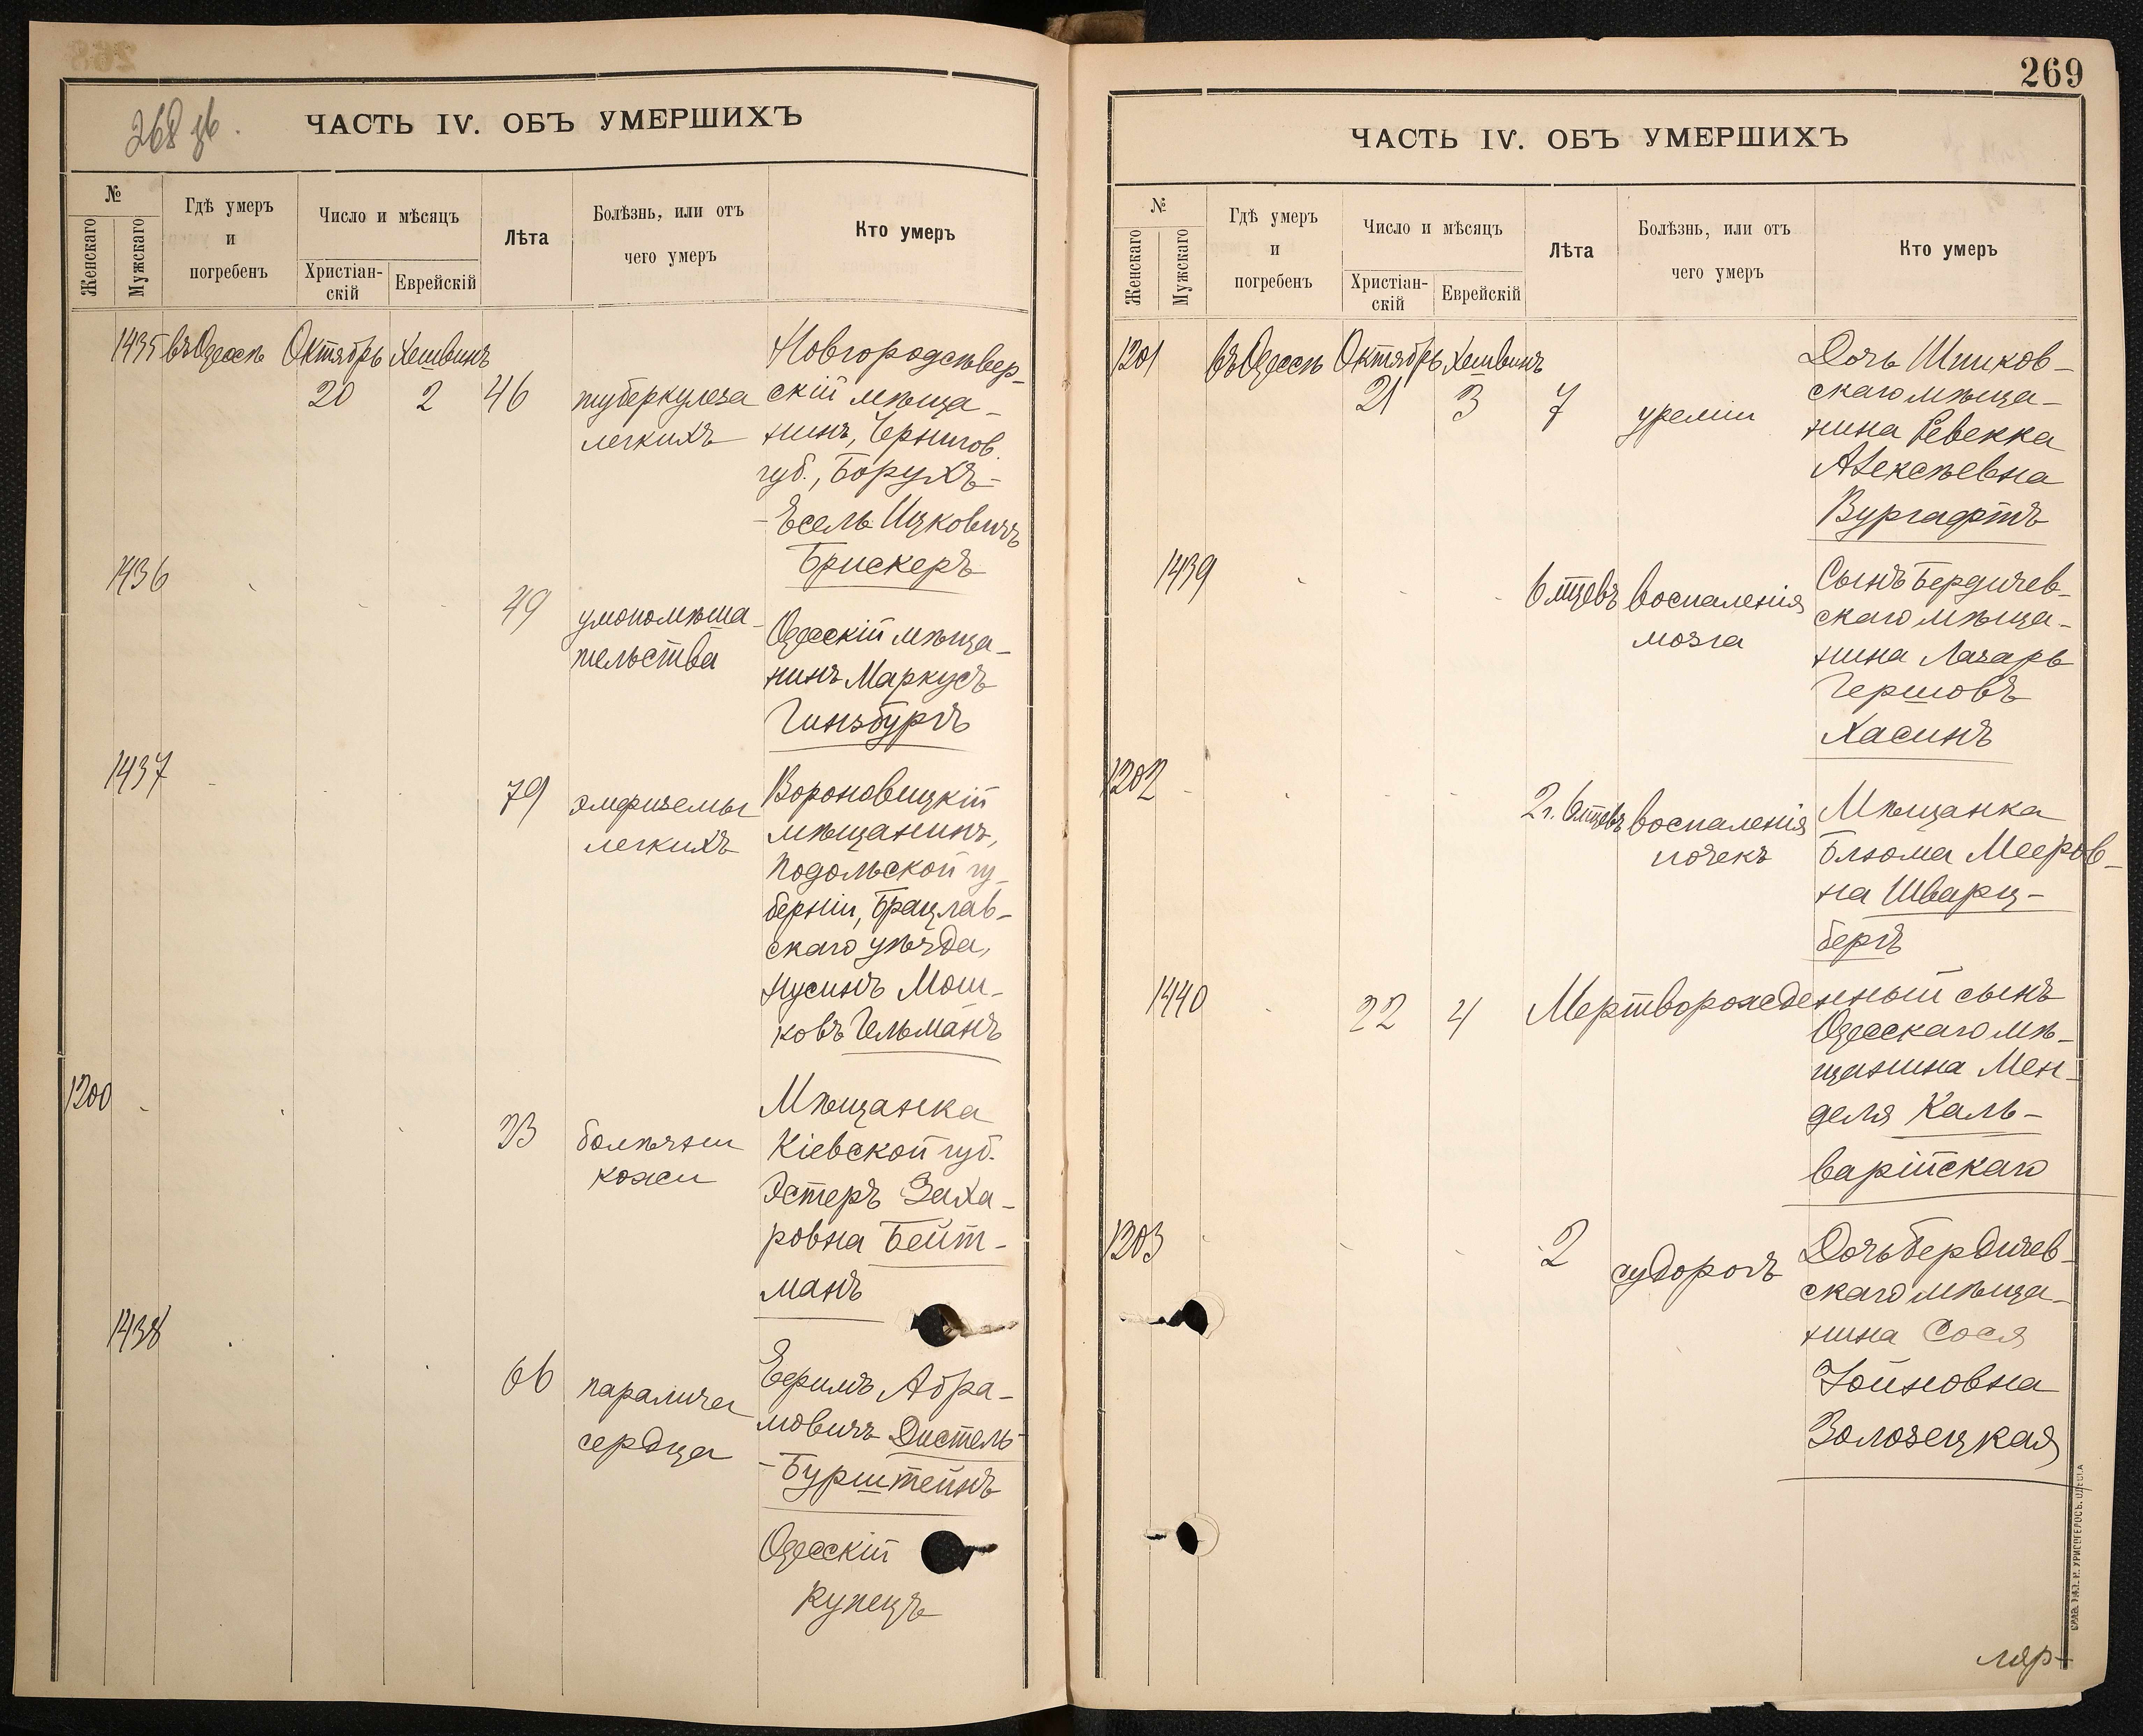 268 об.
ЧАСТЬ IV. ОБЪ УМЕРШИХЪ
№
Женскаго
Мужскаго
Гдѣ умеръ
и
погребенъ
Число и мѣсяцъ
Христіан-
скій
Еврейскій
Лѣта
Болѣзнь, или отъ
чего умеръ
Кто умеръ
1435 въ Одессѣ Октябрь Хешвинъ Новгородсѣвер-
20 2 46 туберкулеза скій мѣща-
легкихъ нинъ, Чернигов.
губ., Борухъ-
-Есель Ицковичъ
Брискеръ
1436
49 умопомѣша-
тельства
Одесскій мѣща-
нинъ Маркусъ
Гинзбургъ
1437
79 эмфиземы
легкихъ
Вороновицкій
мѣщанинъ,
Подольской гу-
берніи, Брацлав-
скаго уѣзда,
Нусинъ Мош-
ковъ Гельманъ
1200
33 болѣзни
кожи
Мѣщанка
Кіевской губ.
Эстеръ Заха-
ровна Бейт-
манъ
1438
66 паралича
сердца
Ефимъ Абра-
мовичъ Дистель-
-Бурштейнъ
Одесскій
купецъ
269
ЧАСТЬ IV. ОБЪ УМЕРШИХЪ
№
Женскаго
Мужскаго
Гдѣ умеръ
и
погребенъ
Число и мѣсяцъ
Христіан-
скій
Еврейскій
Лѣта
Болѣзнь, или отъ
чего умеръ
Кто умеръ
1201 въ Одессѣ Октябрь Хешвинъ Дочь Шпиков-
21 3 7 уреміи скаго мѣща-
нина Ревекка
Алексѣевна
Вургафтъ
1439
6 мцевъ воспаленія
мозга
Сынъ Бердичев-
скаго мѣща-
нина Лазарь
Гершовъ
Хасинъ
1202
2 г. 6 мцевъ воспаленія
почекъ
Мѣщанка
Блюма Мееров-
на Шварц-
бергъ
1440 22 4 Мертворожденный сынъ
Одесскаго мѣ-
щанина Мен-
деля Каль-
варійскаго
1203
2 судорогъ
Дочь бердичев-
скаго мѣща-
нина Сося
Зойновна
Золозецкая